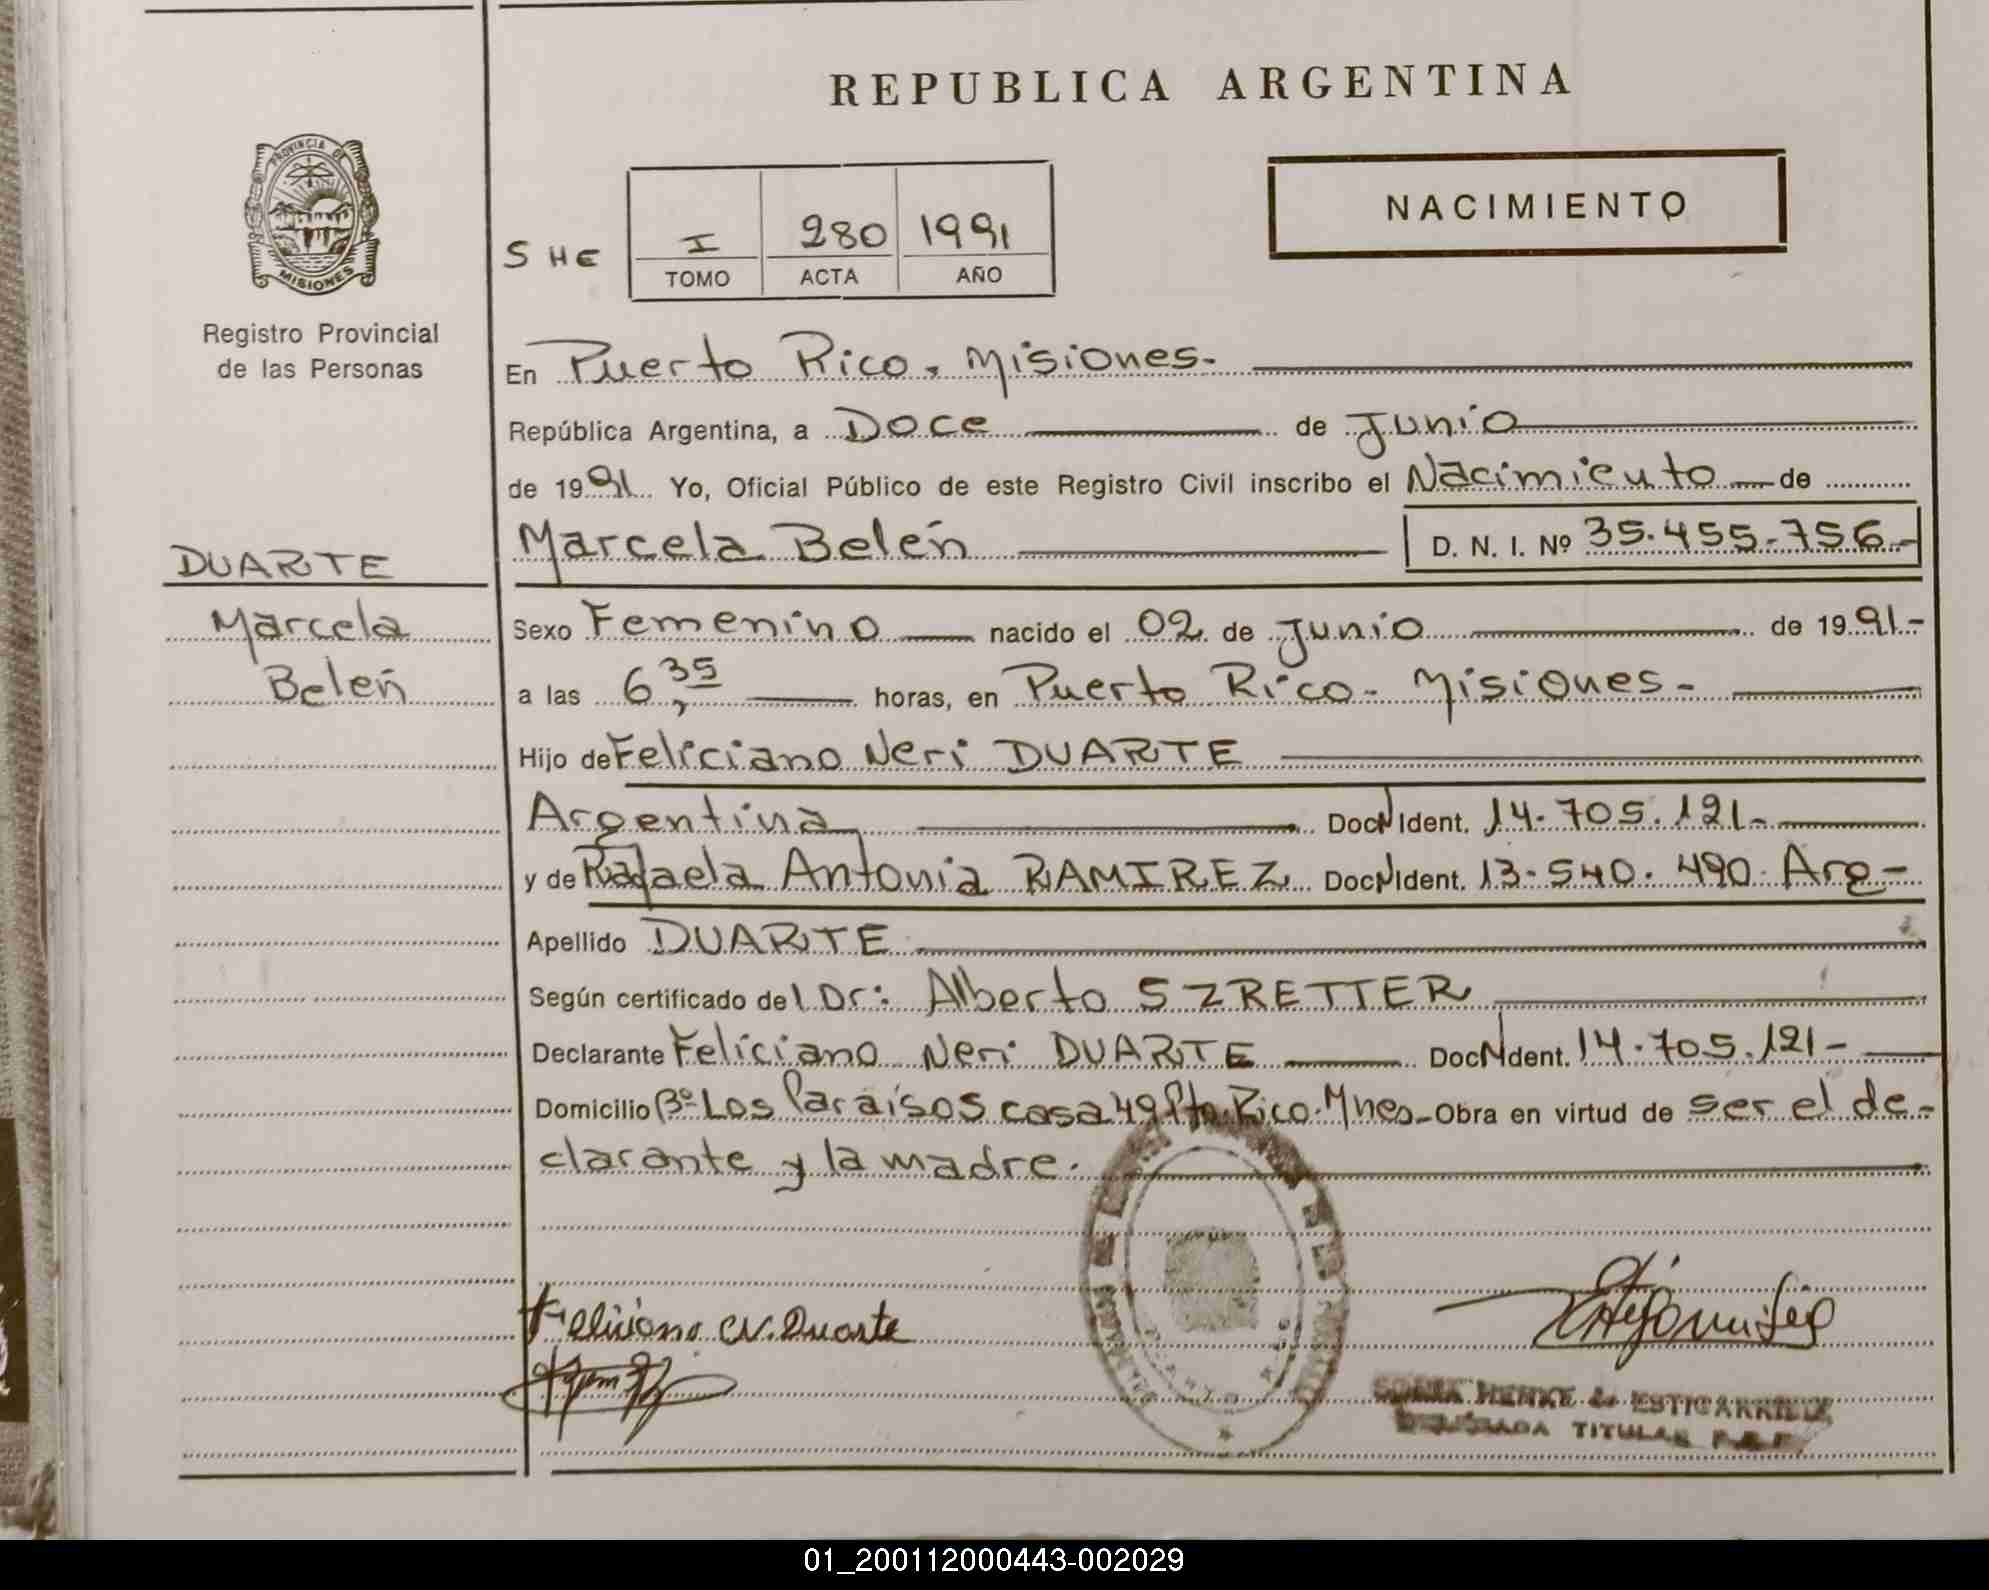 REPUBLICA ARGENTINA
PROVINCIA DE
MISIONES
Registro Provincial
de las Personas
S HE
I 280 1991
TOMO ACTA AÑO
NACIMIENTO
En Puerto Rico. Misiones.
República Argentina, a Doce de Junio
de 1991. Yo, Oficial Público de este Registro Civil inscribo el Nacimiento de
DUARTE
Marcela
Belén
Marcela Belén D. N. I. Nº 35.455.756-
Sexo Femenino nacido el 02 de Junio de 1991-
a las 6,35 horas, en Puerto Rico- Misiones-
Hijo de Feliciano Neri DUARTE
Argentina DocNIdent. 14.705.121-
y de Rafaela Antonia RAMIREZ DocNIdent. 13.540.490. Arg-
Apellido DUARTE
Según certificado del Dr: Alberto SZRETTER
Declarante Feliciano Neri DUARTE DocNIdent. 14.705.121-
Domicilio Bº Los Paraísos casa 49 Pto. Rico. Mnes- Obra en virtud de ser el de-
clarante y la madre.
Feliciano N. Duarte
HENKE de ESTIGARRIBIA
TITULAR
01_200112000443-002029